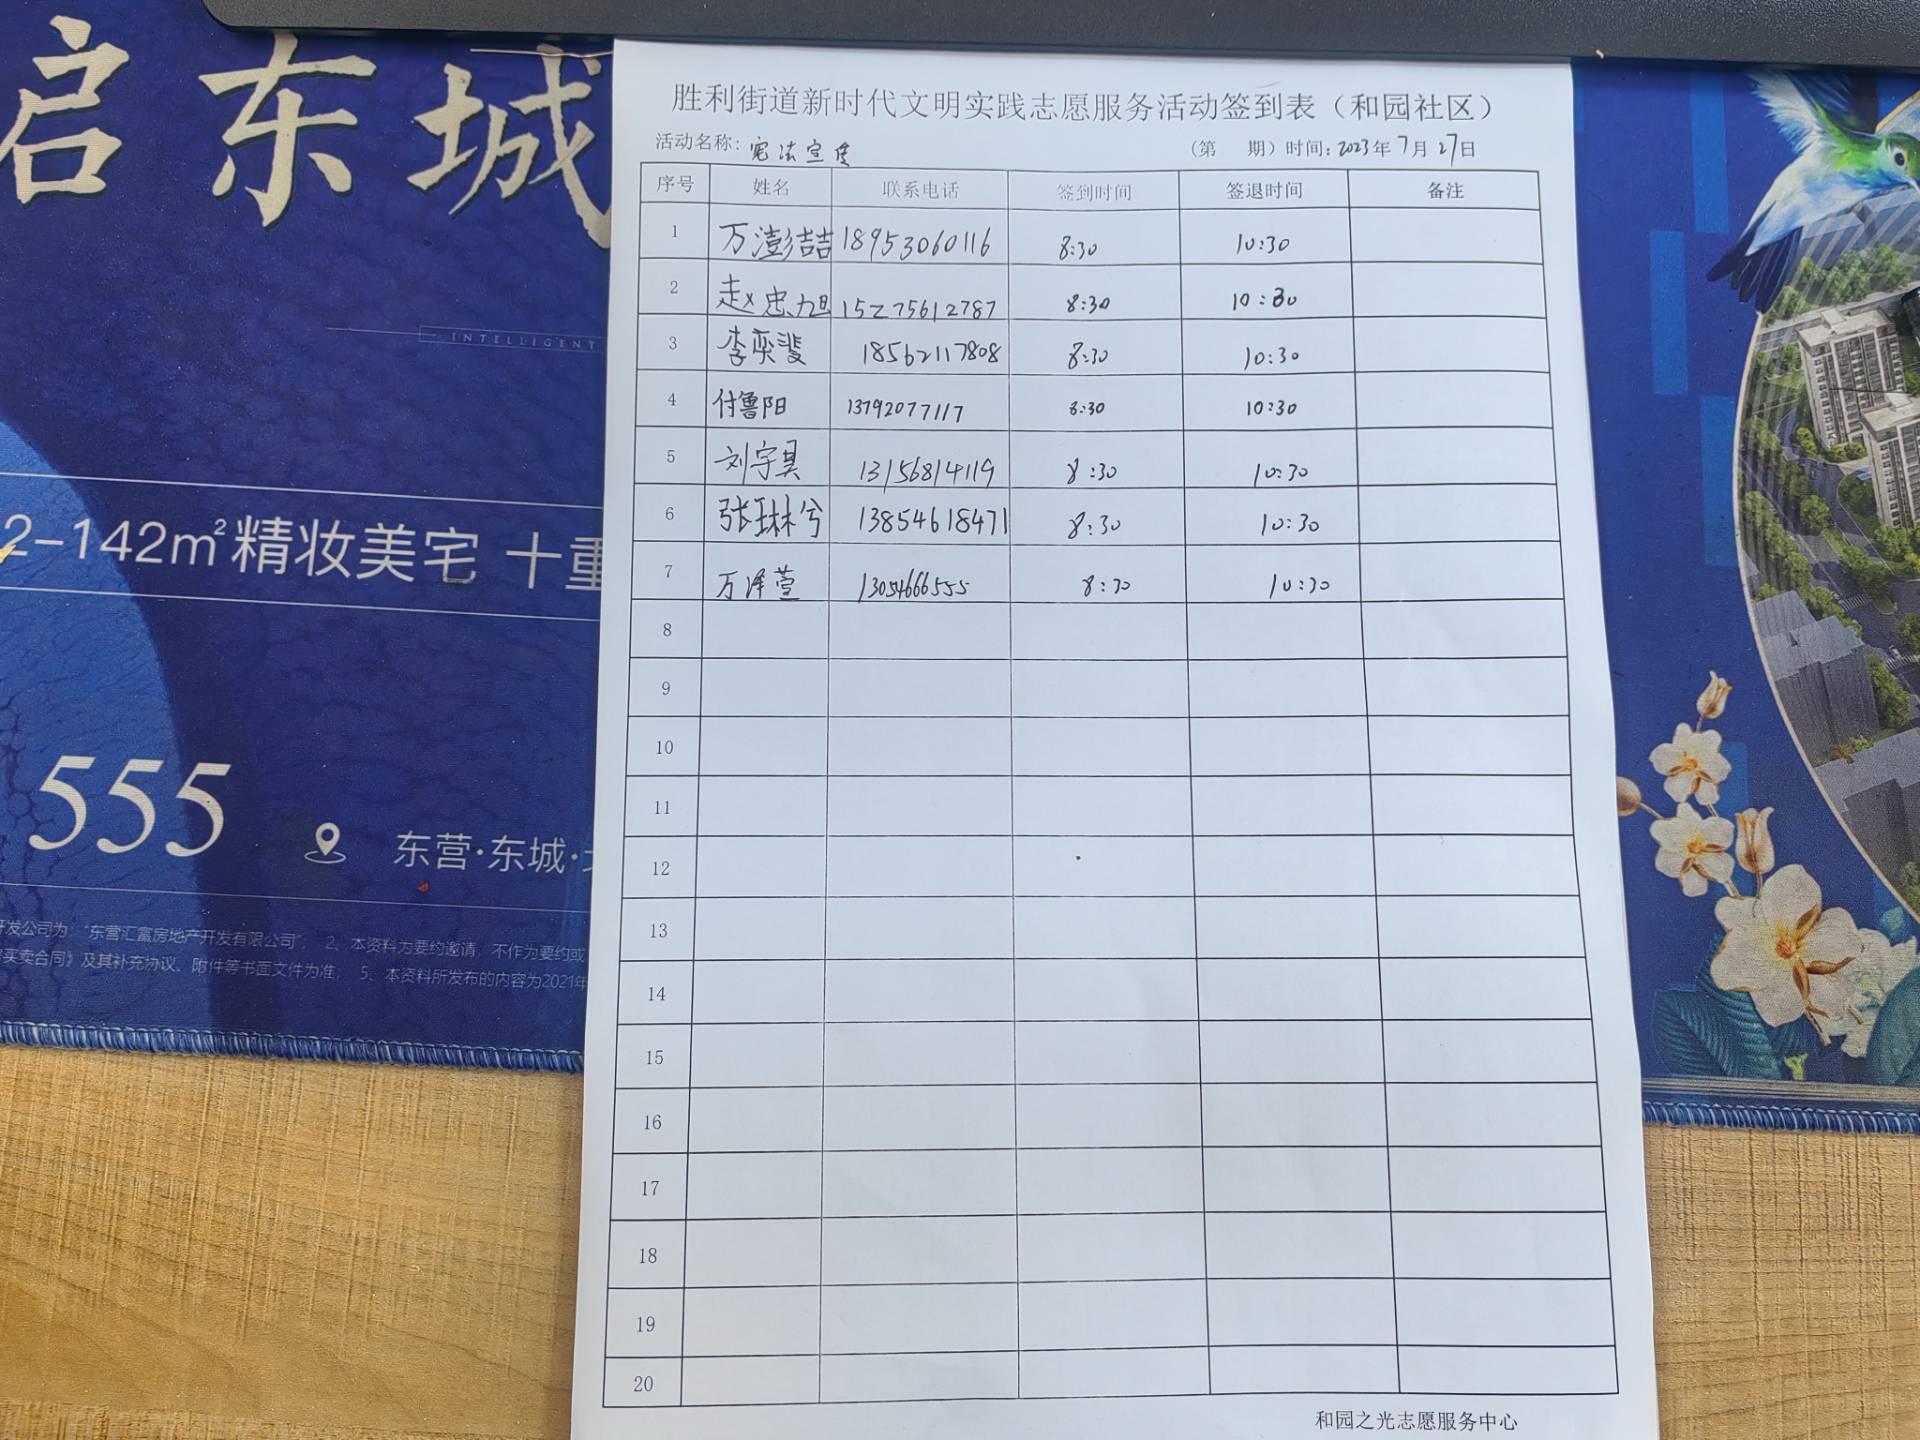 启东城
INTELLIGENT
2-142m²精妆美宅 十重
555
东营·东城·
开发公司为:“东营汇富房地产开发有限公司”; 2、本资料为要约邀请,不作为要约或
买卖合同》及其补充协议、附件等书面文件为准; 5、本资料所发布的内容为2021年
胜利街道新时代文明实践志愿服务活动签到表（和园社区）
活动名称：宪法宣传 （第 期）时间：2023年7月27日
序号 姓名 联系电话 签到时间 签退时间 备注
1 万澎喆 18953060116 8:30 10:30
2 赵忠旭 15275612787 8:30 10:30
3 李奕斐 18562117808 8:30 10:30
4 付鲁阳 13792077117 8:30 10:30
5 刘宇昊 13156814119 8:30 10:30
6 张琳兮 13854618471 8:30 10:30
7 万泽萱 13054666555 8:30 10:30
8
9
10
11
12
13
14
15
16
17
18
19
20
和园之光志愿服务中心